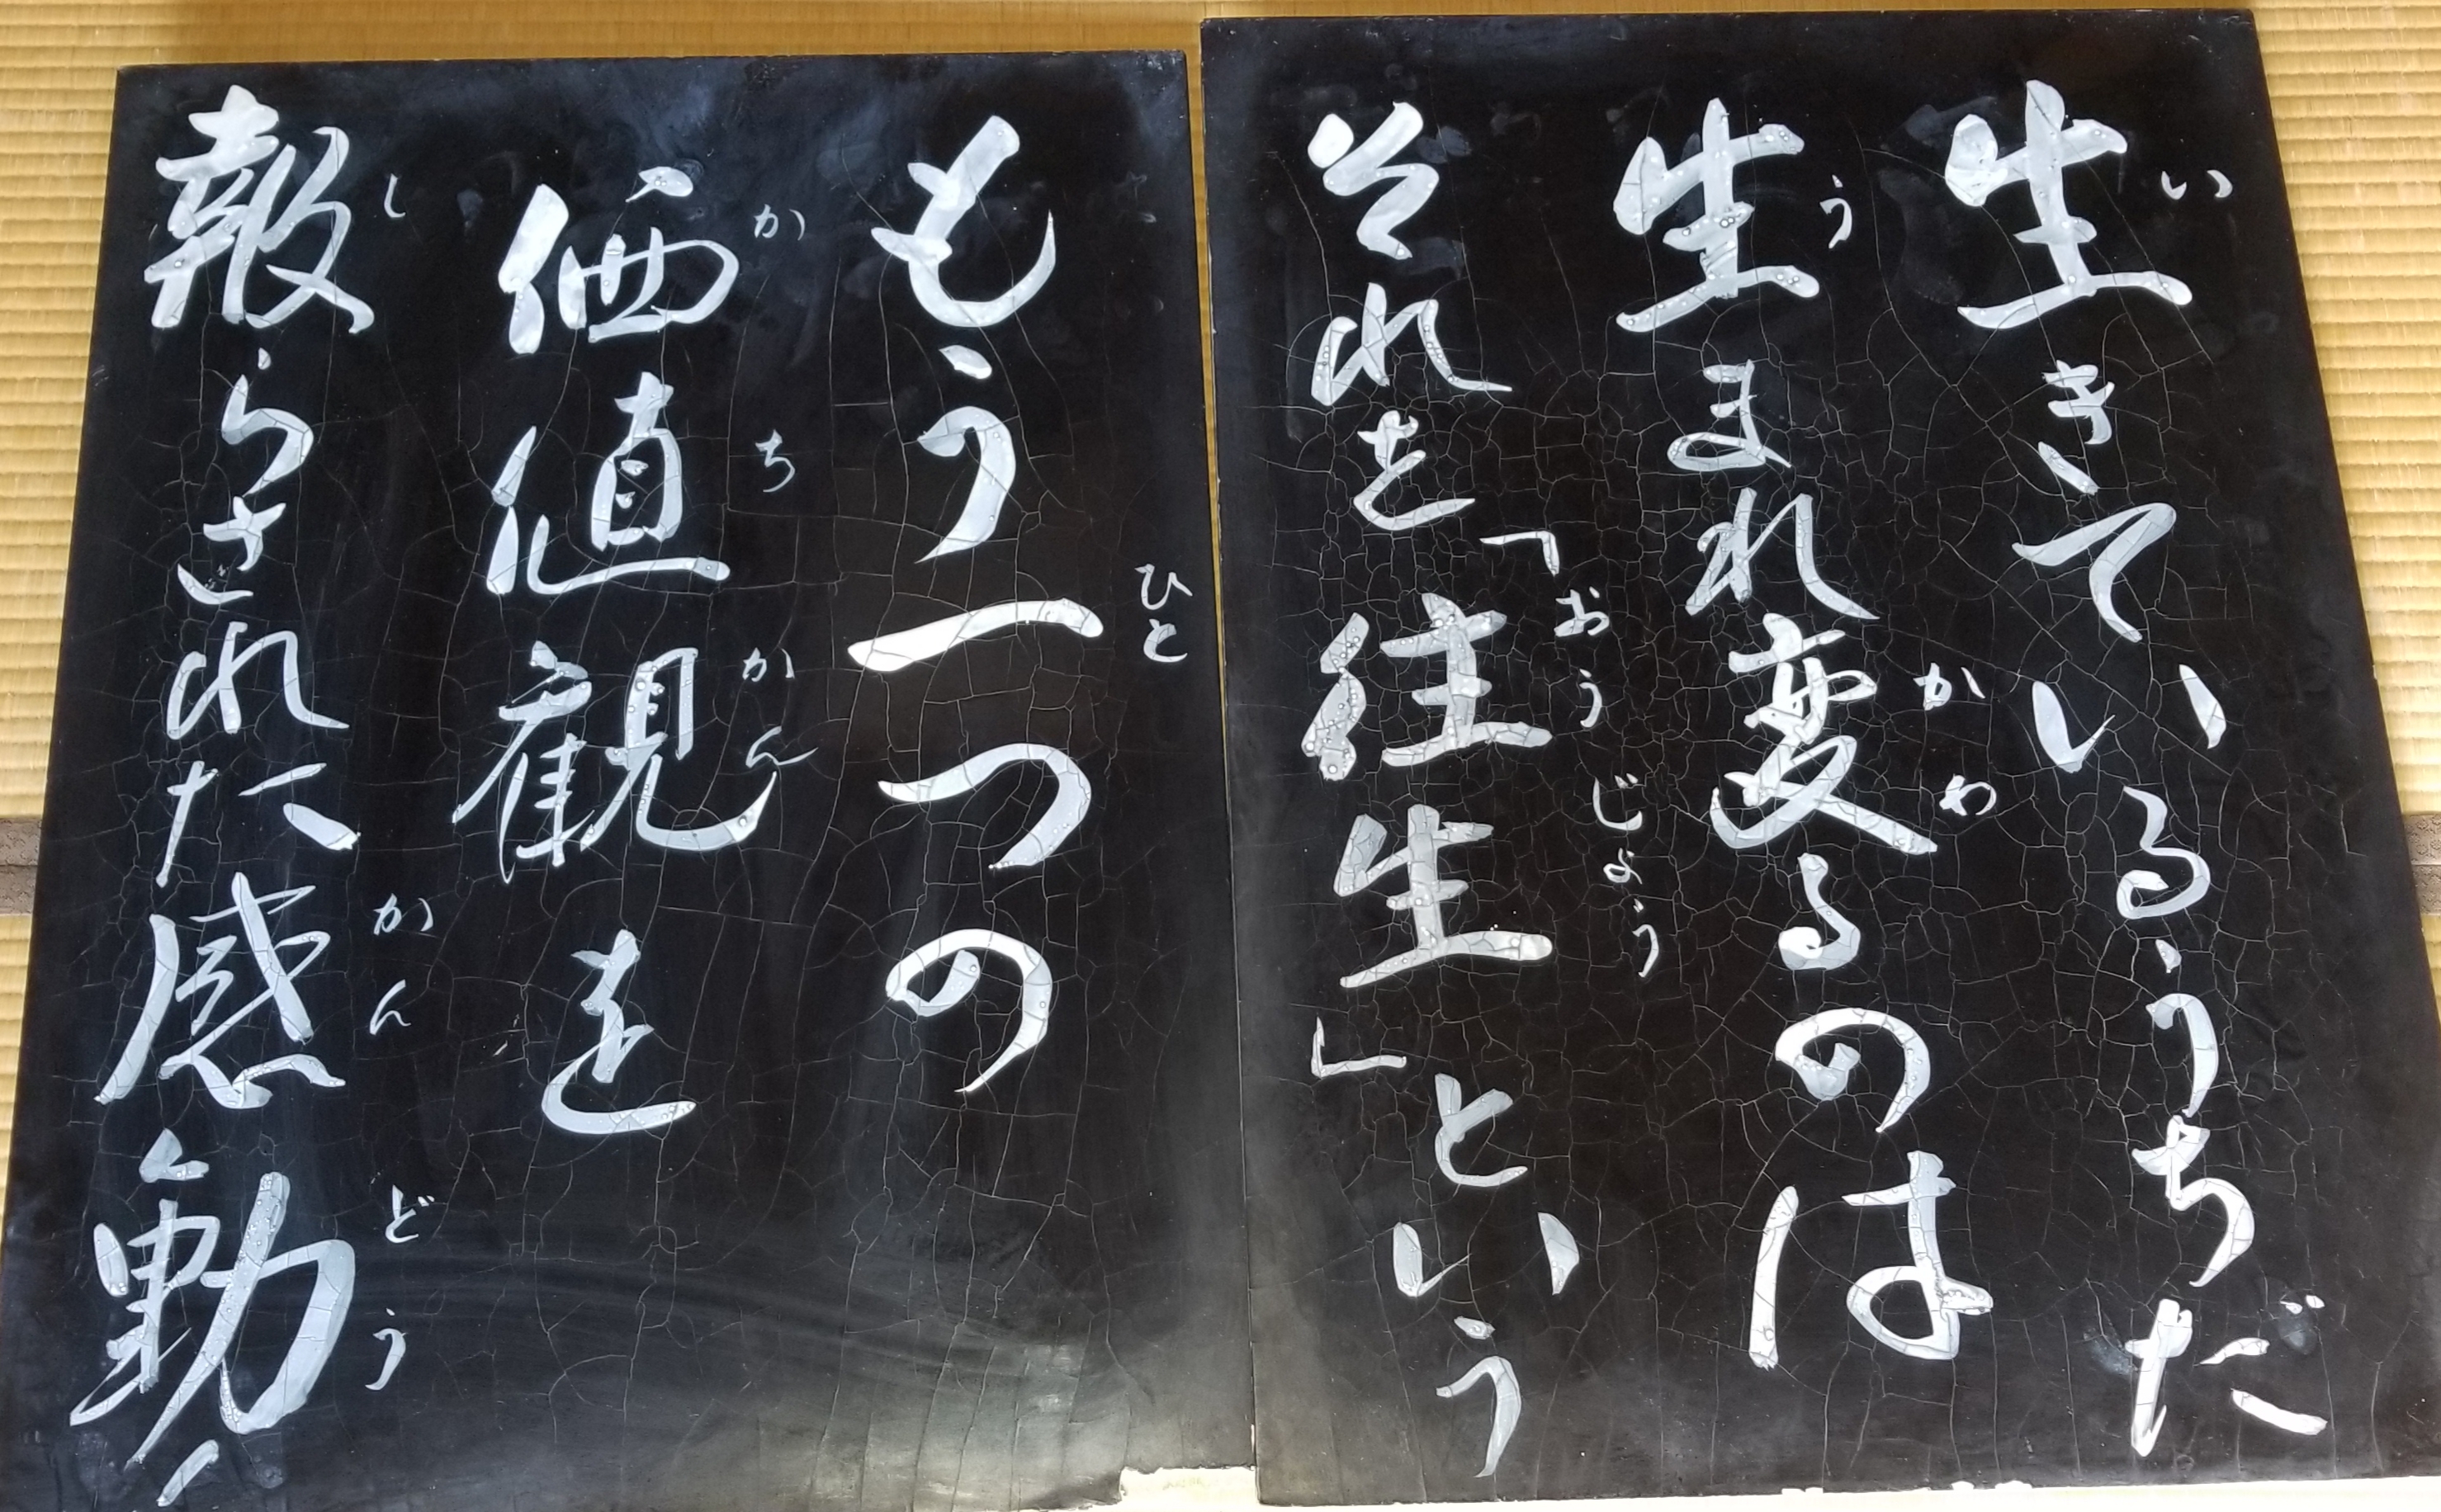 生きているうちだ
生まれ変るのは
それを「往生」という
もう一つの
価値観を
報らされた感動!
い
う
かわ
おうじょう
ひと
かちかん
し
かんどう